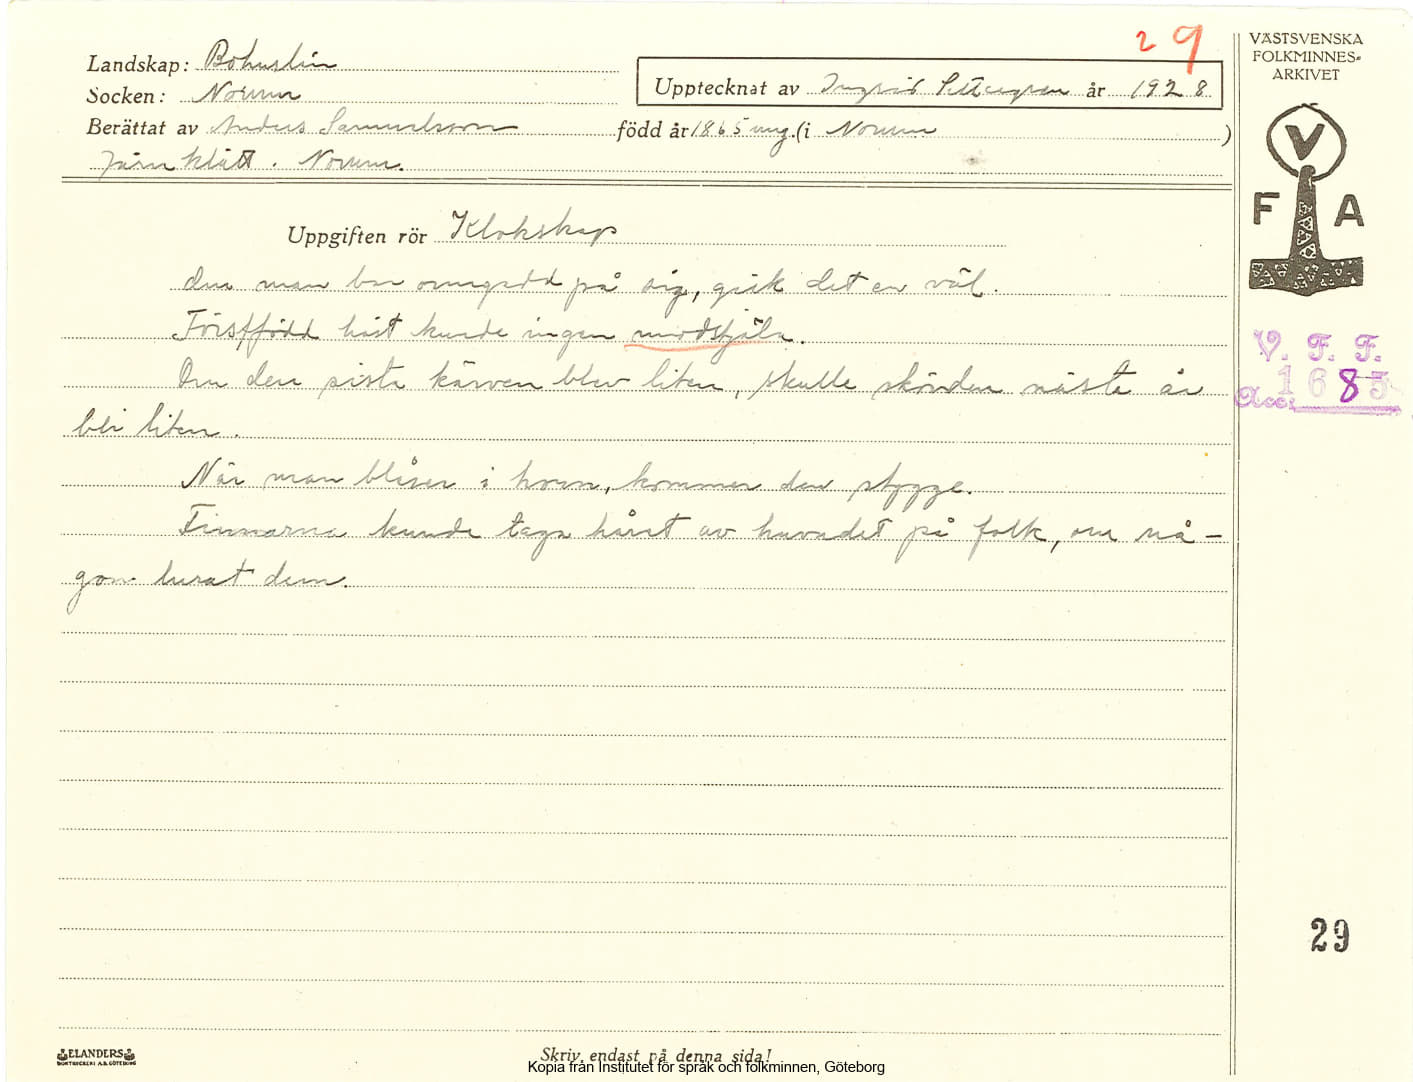 29
VÄSTSVENSKA
FOLKMINNES=
ARKIVET
Landskap: Bohuslän
Upptecknat av Ingrid år 1928
Socken: Norum
Berättat av Anders Samuelsson född år 1865 ung. (i Norum)
Järnklätt. Norum.
V
F A
Uppgiften rör Klokskap
man bar på sig, gick det en väl.
Förstfödd häst kunde ingen modstjäla.
Om den sista kärven blev liten, skulle skörden nästa år
bli liten.
När man blåser i horn, kommer den stygge.
Finnarna kunde taga håret av huvudet på folk, om nå-
gon lurat dem.
V. F. F.
Acc. 1685
29
ELANDERS
BOKTRYCKERI A.B. GÖTEBORG
Skriv endast på denna sida!
Kopia från Institutet för språk och folkminnen, Göteborg